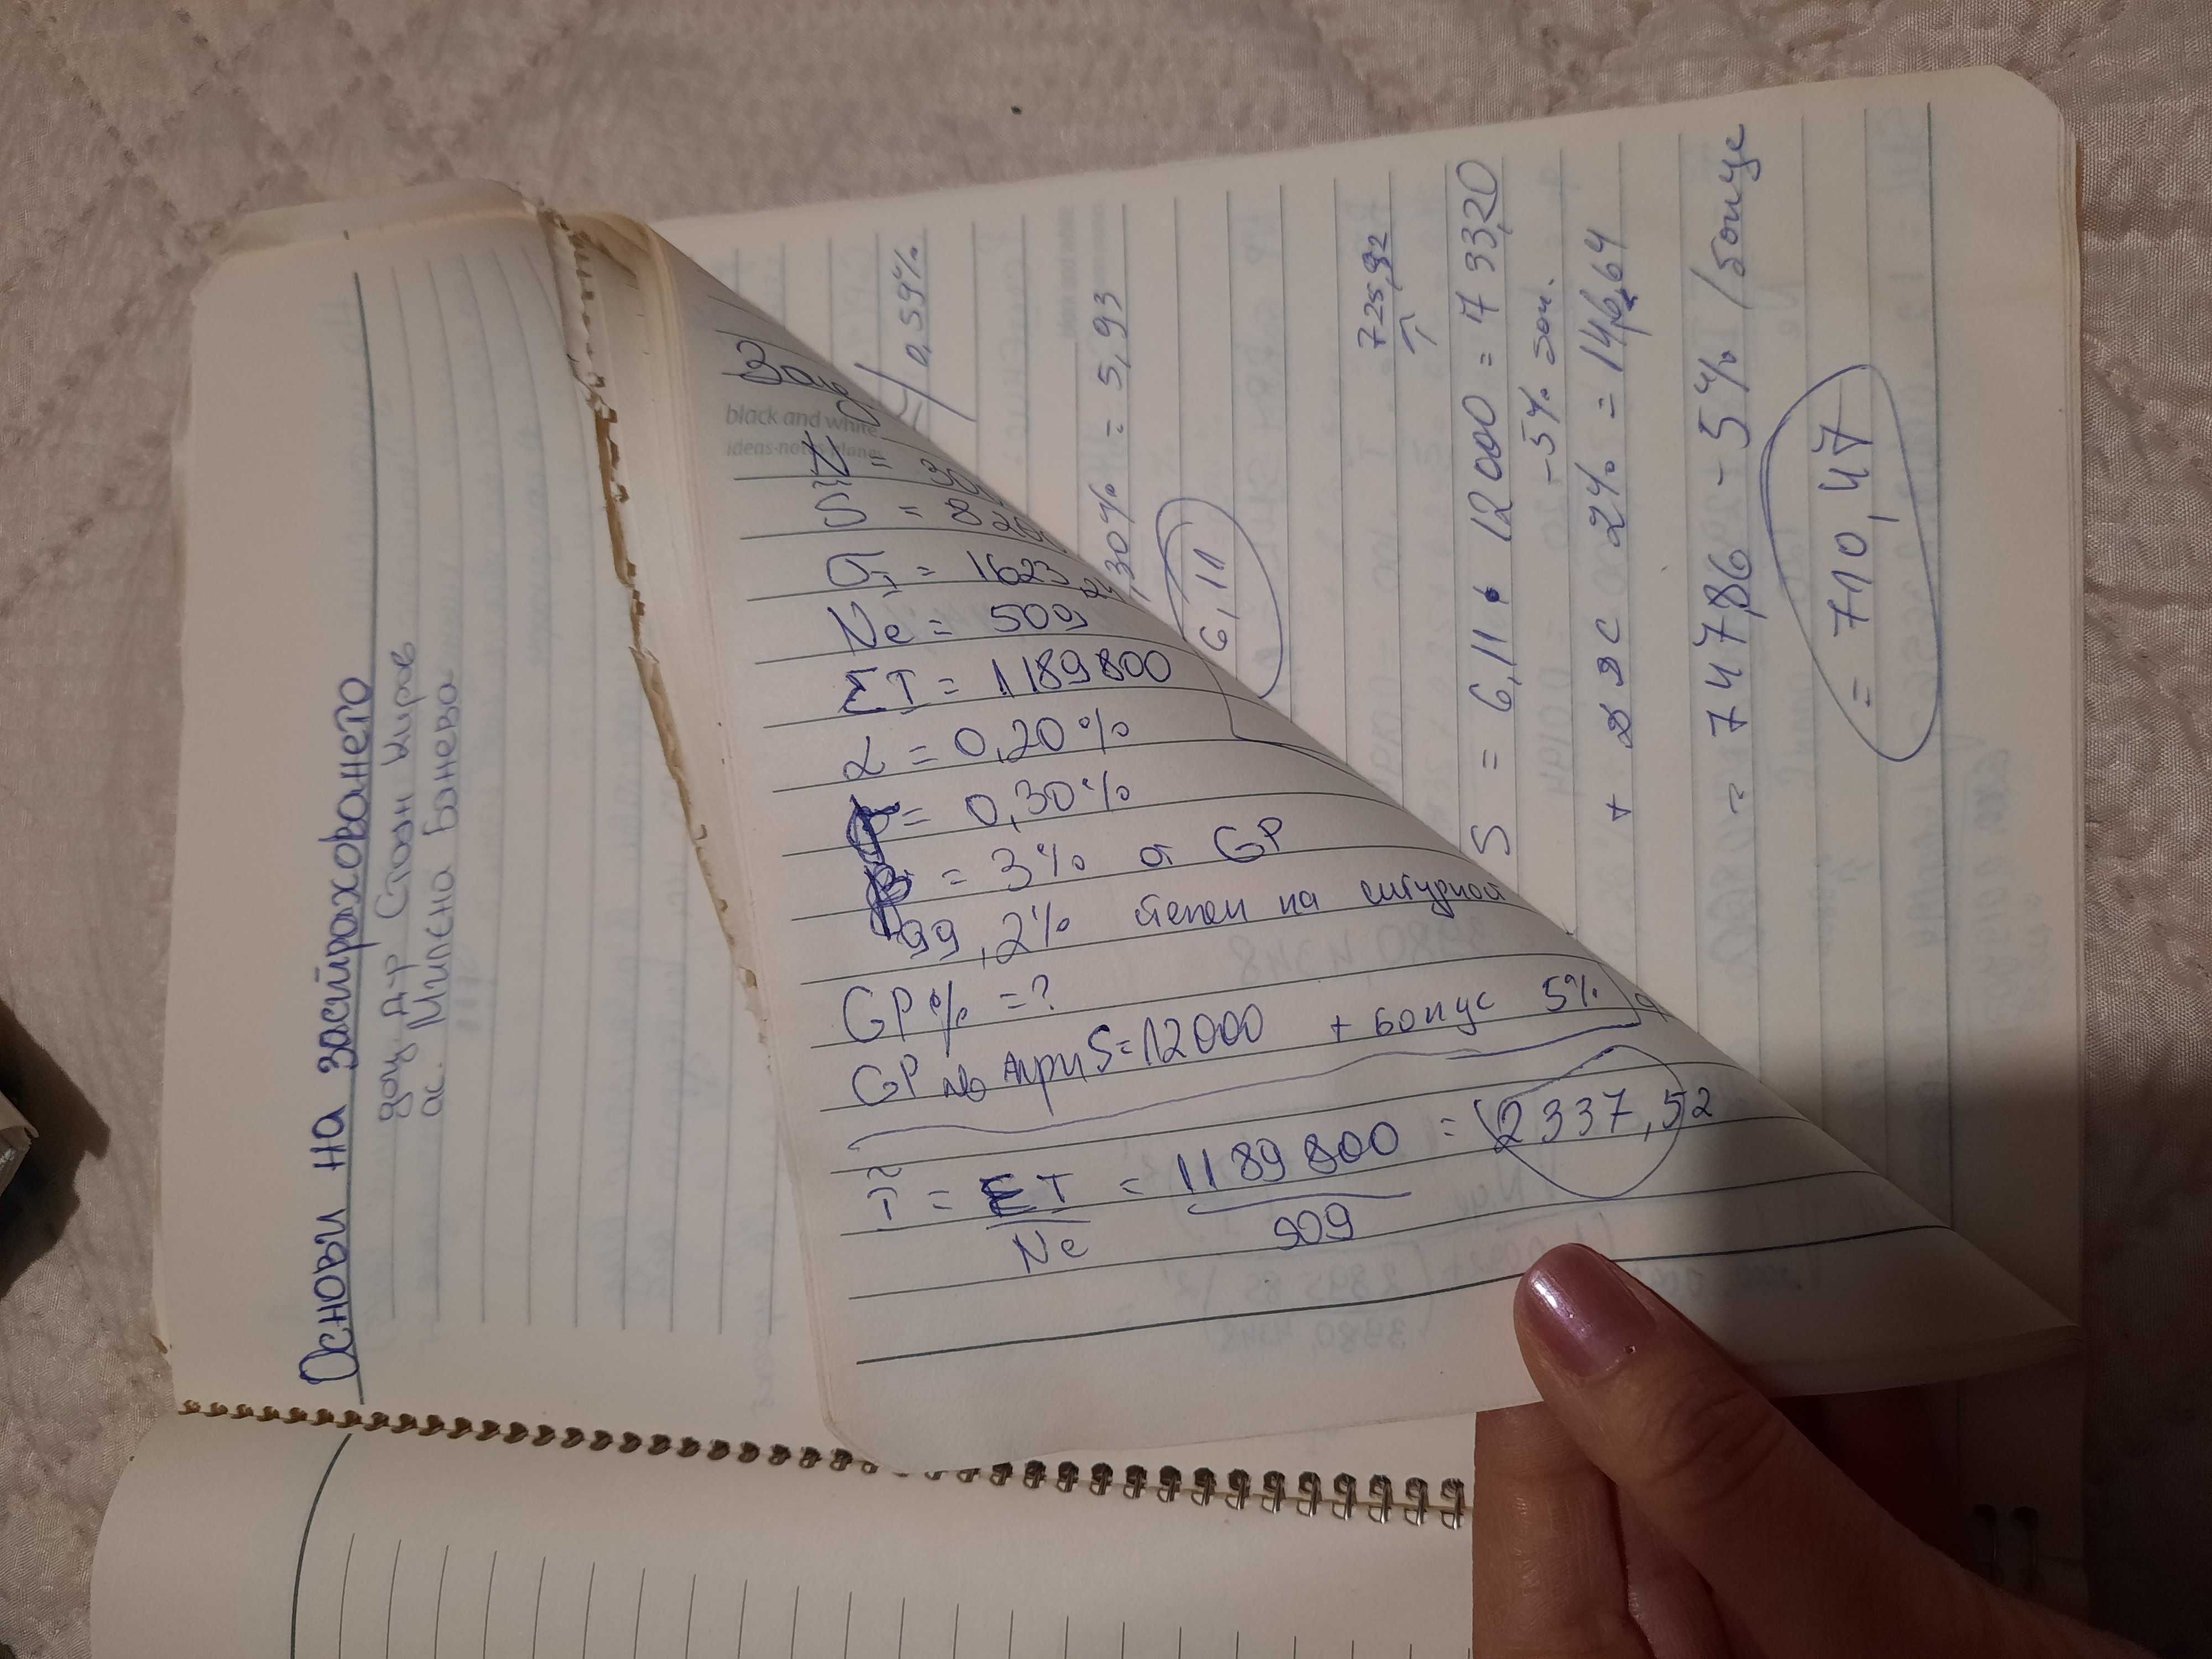 Основи на застраховането
доц. д-р Стоян Киров
ас. Милена Банева
black and white
ideas-notes
N =
= 820
= 1623,24
Ne = 509
ΣT = 1189800
α = 0,20%
= 0,30%
β = 3% от GP
99,2% степен на сигурност
GP% = ?
GP лв при S=12000 + бонус 5%
= ΣT / Ne = 1189800 / 509 = 2337,52
0,59%
,30% = 5,93
6,11
725,92
S = 6,11 • 12000 = 733,20
-5% бон.
+ ДЗС 2% = 14,664
= 747,86 - 5% / бонус
= 710,47